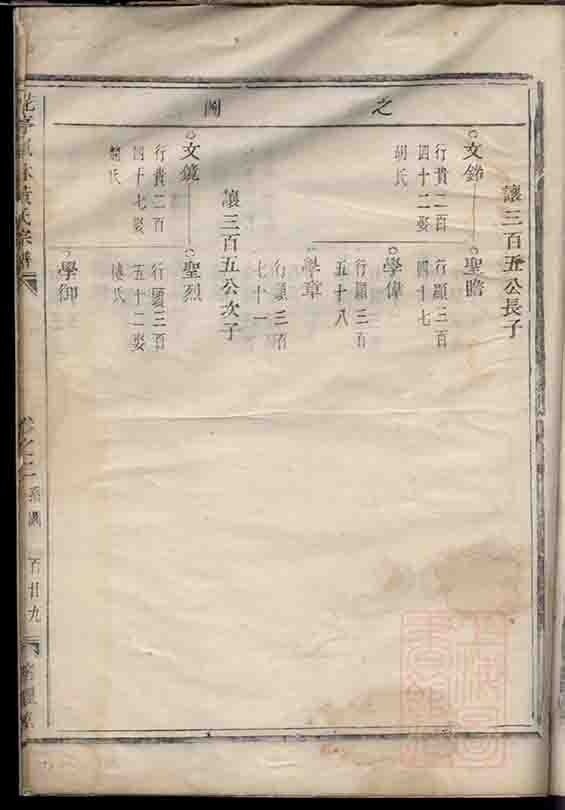 之圖
讓三百五公長子
文鋒
行貴二百
四十二娶
胡氏
聖瞻
行顯三百
四十七
學偉
行顯三百
五十八
學章
行顯三百
七十一
讓三百五公次子
文鏡
行貴二百
四十七娶
氏
聖烈
行顯三百
五十二娶
樓氏
學御
黃氏宗譜
卷之二
系圖
百廿九